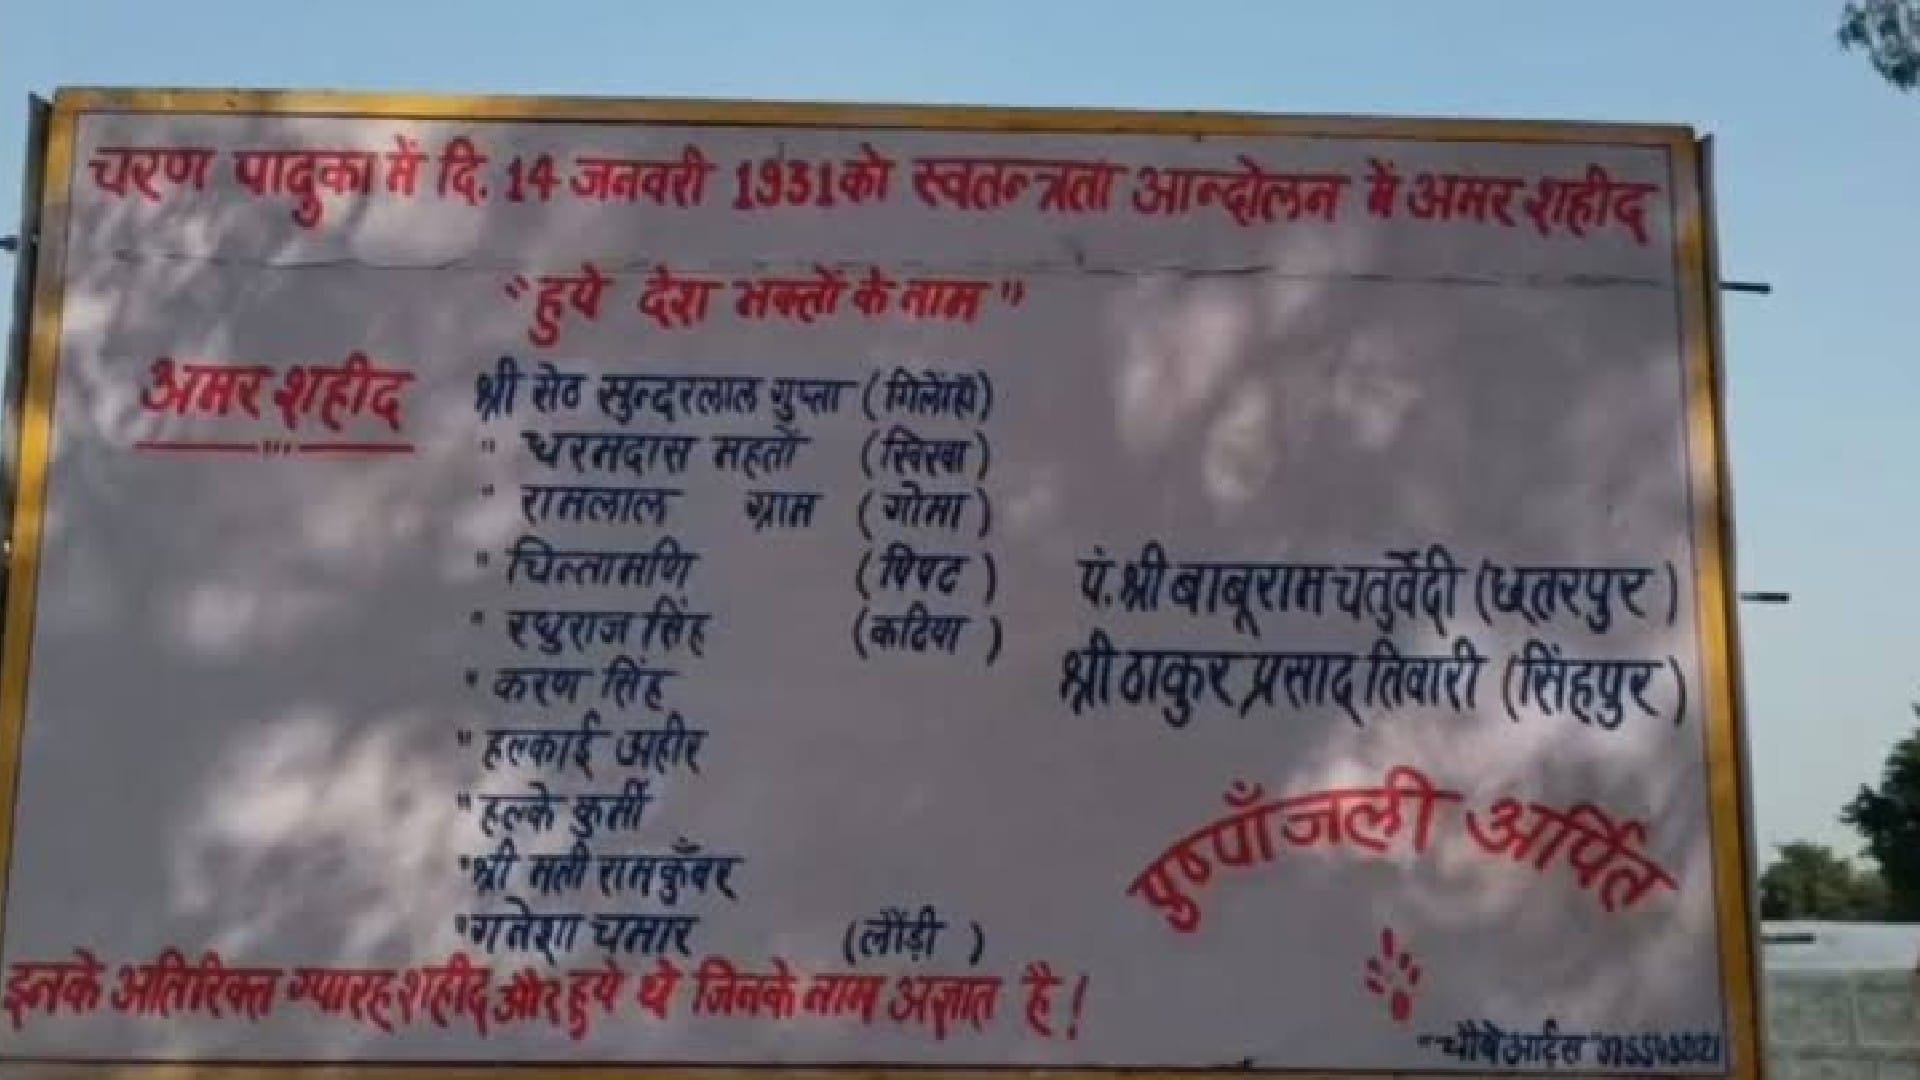 चरण पादुका में दि. 14 जनवरी 1931 को स्वतन्त्रता आन्दोलन में अमर शहीद
"हुये देश भक्तों के नाम"
अमर शहीद
श्री सेठ सुन्दरलाल गुप्ता (गिलौंहा)
" धरमदास महतों (खिरवा)
" रामलाल ग्राम (गोमा)
" चिन्तामणि (पिपट)
" रघुराज सिंह (कटिया)
" करण सिंह
" हल्काई अहीर
" हल्के कुर्मी
" श्री मती रामकुँवर
" गनेशा चमार (लौंड़ी)
इनके अतिरिक्त ग्यारह शहीद और हुये थे जिनके नाम अज्ञात है!
पं. श्री बाबूराम चतुर्वेदी (छतरपुर)
श्री ठाकुर प्रसाद तिवारी (सिंहपुर)
पुष्पाँजली अर्पित
"चौबे आर्टस